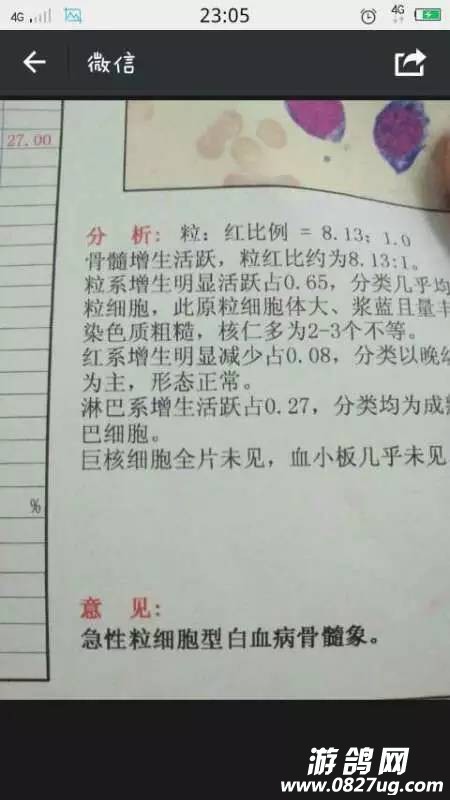 4G
23:05
4G
微信
27.00
分 析: 粒: 红比例 = 8.13: 1.0
骨髓增生活跃，粒红比约为8.13:1。
粒系增生明显活跃占0.65，分类几乎均
粒细胞，此原粒细胞体大、浆蓝且量丰
染色质粗糙，核仁多为2-3个不等。
红系增生明显减少占0.08，分类以晚幼
为主，形态正常。
淋巴系增生活跃占0.27，分类均为成熟
巴细胞。
巨核细胞全片未见，血小板几乎未见
%
意 见:
急性粒细胞型白血病骨髓象。
游鸽网
www.0827ug.com